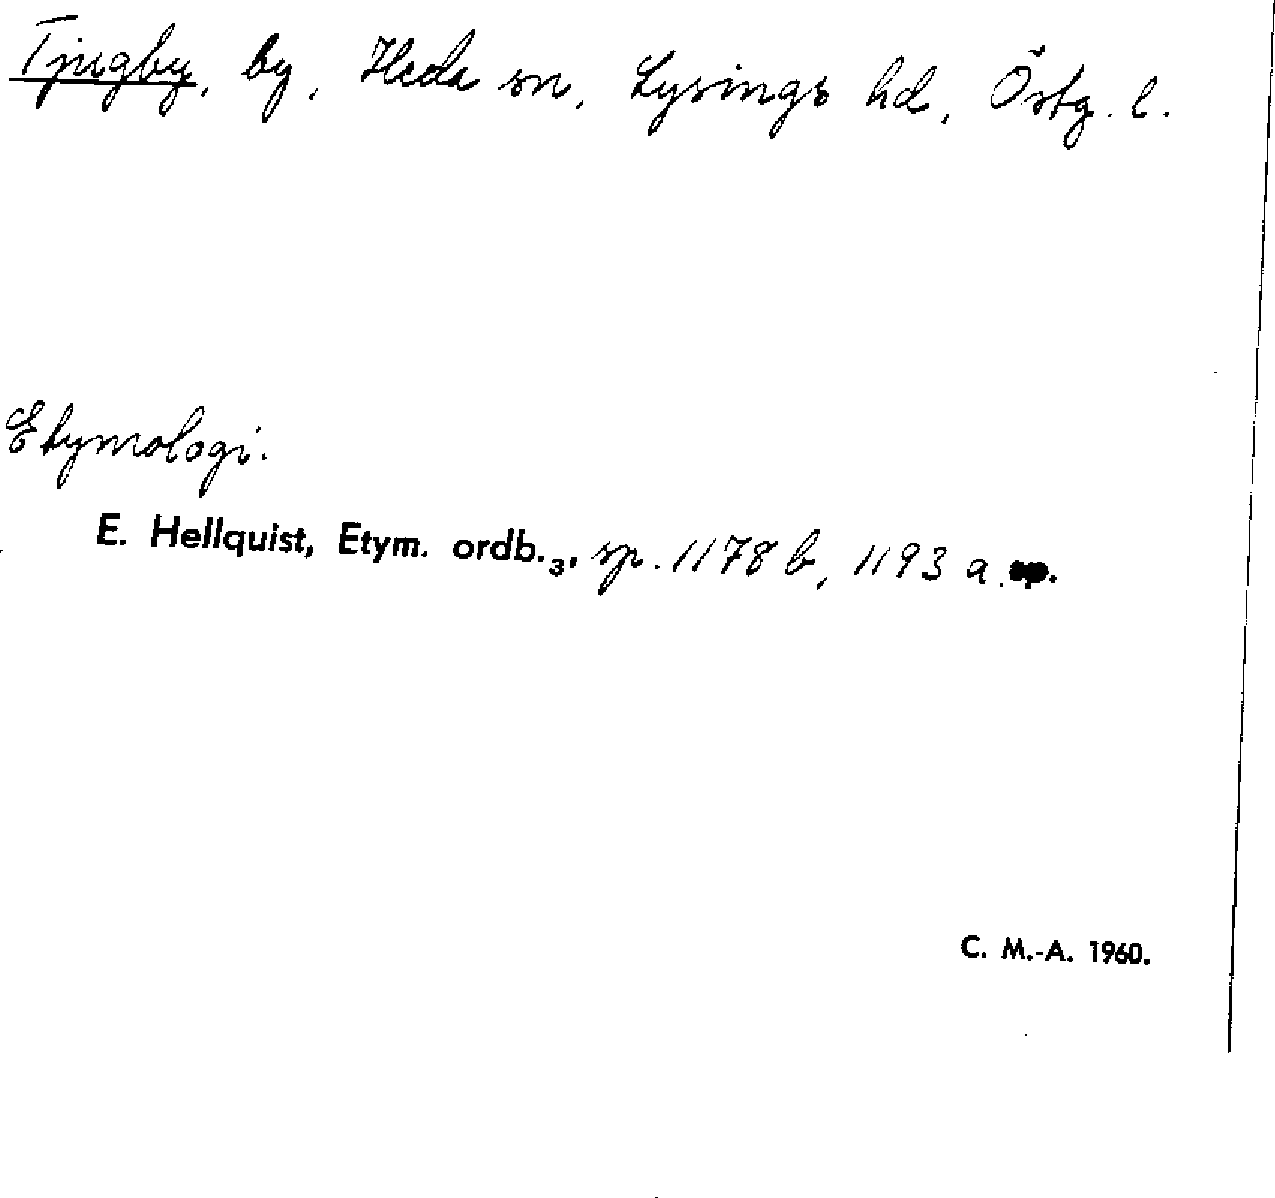 Tjugby, by, Heda sn, Lysings hd, Östg. l.
Etymologi.
E. Hellquist, Etym. ordb.₃, sp. 1178 b, 1193 a.
C. M.-A. 1960.